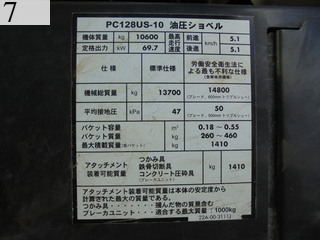 7
PC128US-10 油圧ショベル
機体質量 kg 10600 最高走行速度 前進 km/h 5.1
定格出力 kW 69.7 後進 5.1
仕様 標準仕様 労働安全衛生法による最も不利な仕様
機械総質量 kg 13700 14800
(ブレード、600mmトリプルシュー)
平均接地圧 kPa 47 50
(ブレード、600mmトリプルシュー)
バケット容量 m³ 0.18 ~ 0.55
バケット質量 kg 260 ~ 460
最大積載質量 kg 1410
アタッチメント装着可能質量 つかみ具 鉄骨切断具 コンクリート圧砕具 kg 1410
(ブレーカユニット)
アタッチメント装着可能質量は本体の安定度から
計算された最大の質量です。
つかみ具・・・・・掴んだ物の質量含む
ブレーカユニット・・・適合する最大質量:1000kg
22A-00-31113